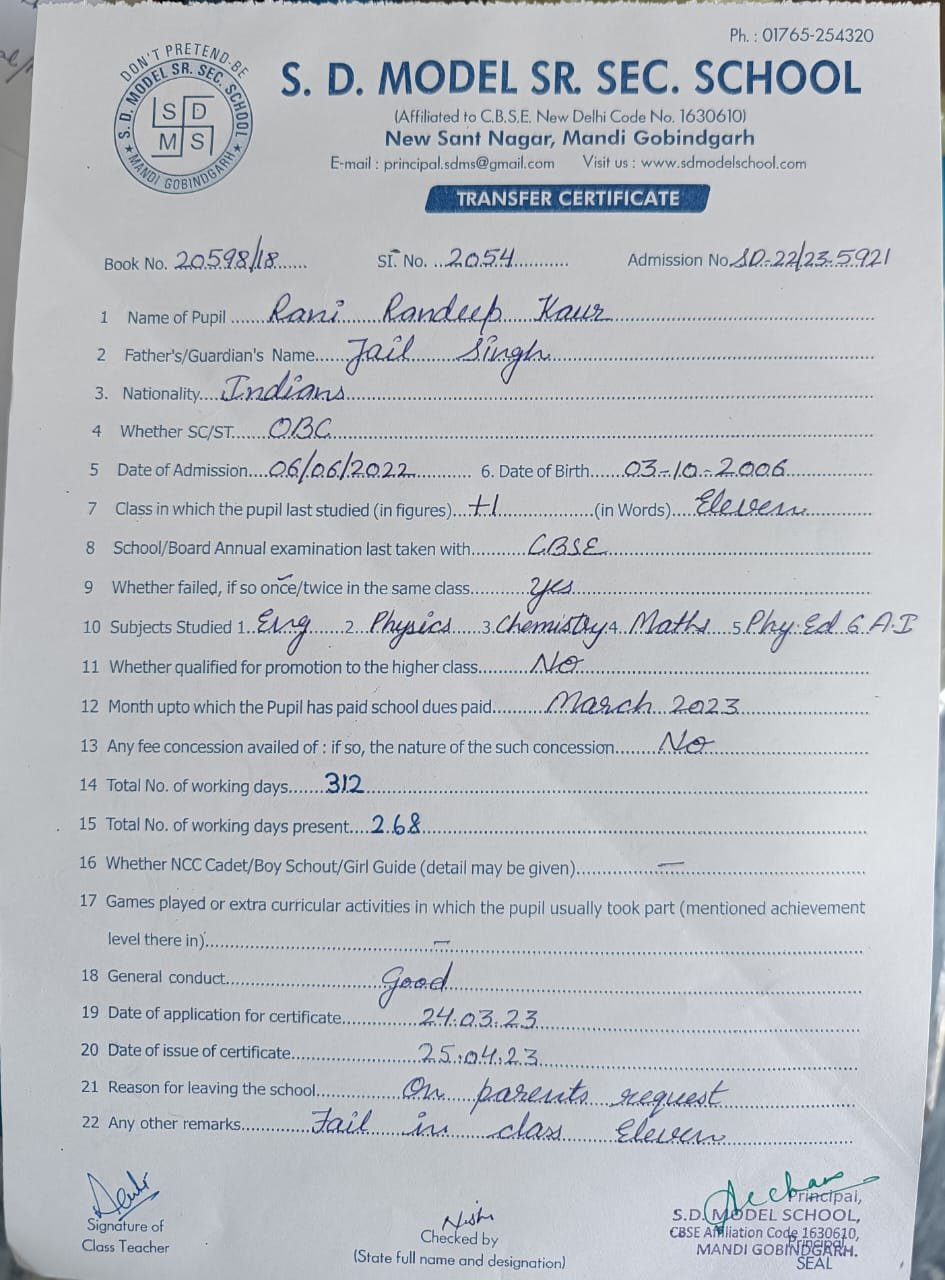 Ph. : 01765-254320
DON'T PRETEND-BE
S. D. MODEL SR. SEC. SCHOOL
S D
M S
MANDI GOBINDGARH
S. D. MODEL SR. SEC. SCHOOL
(Affiliated to C.B.S.E. New Delhi Code No. 1630610)
New Sant Nagar, Mandi Gobindgarh
E-mail : principal.sdms@gmail.com Visit us : www.sdmodelschool.com
TRANSFER CERTIFICATE
Book No. 20598/18 Sl. No. 2054 Admission No. SD-22/23-5921
1 Name of Pupil Rani Randeep Kaur
2 Father's/Guardian's Name Jail Singh
3. Nationality Indians
4 Whether SC/ST OBC
5 Date of Admission 06/06/2022 6. Date of Birth 03-10-2006
7 Class in which the pupil last studied (in figures) +1 (in Words) Eleven
8 School/Board Annual examination last taken with CBSE
9 Whether failed, if so once/twice in the same class yes
10 Subjects Studied 1. Eng 2. Physics 3. Chemistry 4. Maths 5. Phy.Ed 6 A.I
11 Whether qualified for promotion to the higher class No
12 Month upto which the Pupil has paid school dues paid March 2023
13 Any fee concession availed of : if so, the nature of the such concession No
14 Total No. of working days 312
15 Total No. of working days present 268
16 Whether NCC Cadet/Boy Schout/Girl Guide (detail may be given) —
17 Games played or extra curricular activities in which the pupil usually took part (mentioned achievement
level there in) —
18 General conduct Good
19 Date of application for certificate 24.03.23
20 Date of issue of certificate 25.04.23
21 Reason for leaving the school On parents request
22 Any other remarks Fail in class Eleven
Signature of
Class Teacher
Nisha
Checked by
(State full name and designation)
Principal,
S.D. MODEL SCHOOL,
CBSE Affiliation Code 1630610,
MANDI GOBINDGARH.
Principal
SEAL